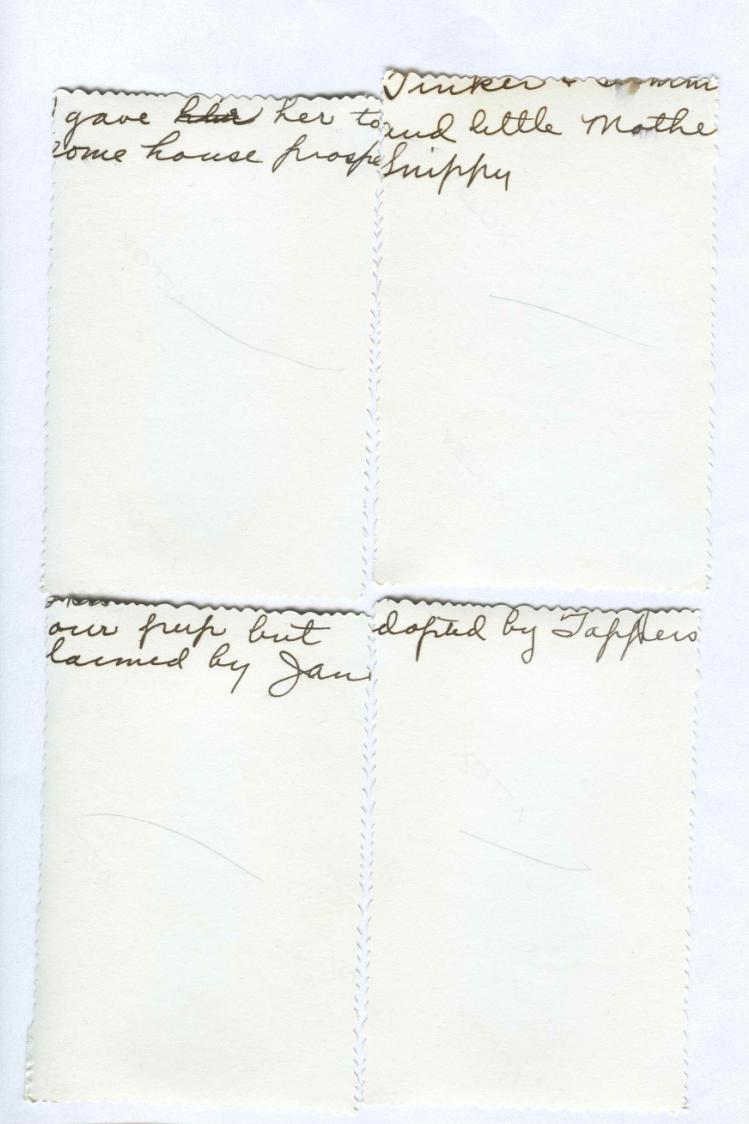 I gave her to
some house prospe
Tinker &
and little Mothe
Snippy
our pup but
laimed by Jan
dopted by Tappers